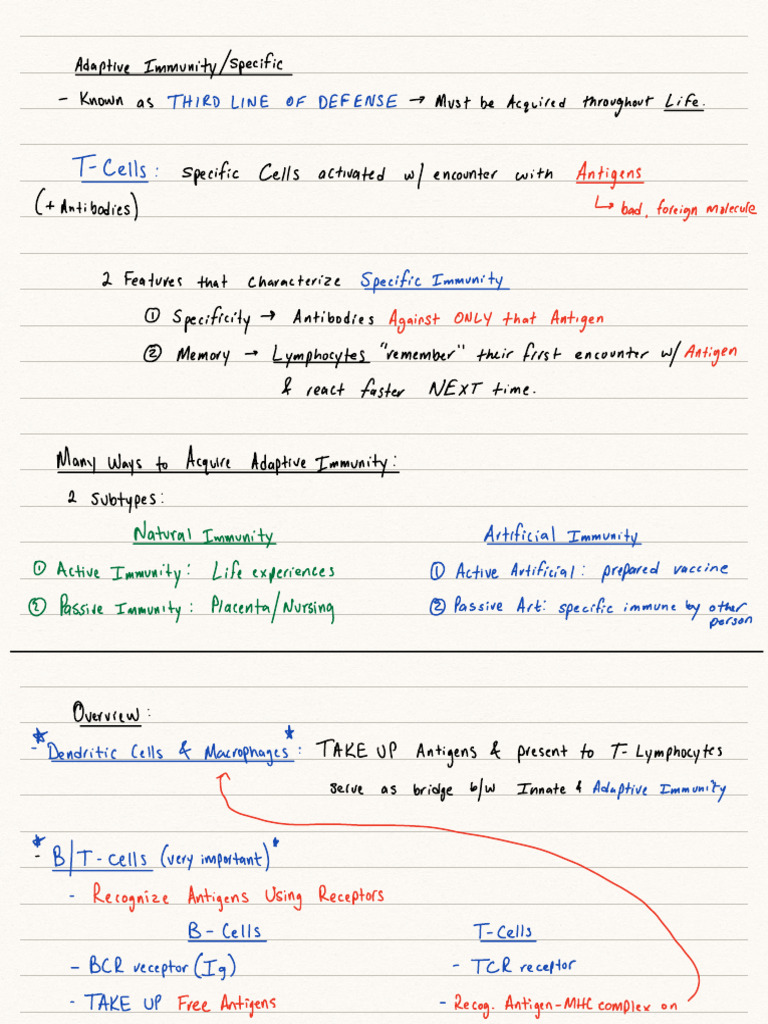 Adaptive Immunity/Specific
- Known as THIRD LINE OF DEFENSE → Must be Acquired throughout Life.
T-Cells: Specific Cells activated w/ encounter with Antigens
(+ Antibodies)
↳ bad, foreign molecule
2 Features that characterize Specific Immunity
① Specificity → Antibodies Against ONLY that Antigen
② Memory → Lymphocytes "remember" their first encounter w/ Antigen
& react faster NEXT time.
Many Ways to Acquire Adaptive Immunity:
2 Subtypes:
Natural Immunity
① Active Immunity: Life experiences
② Passive Immunity: Placenta/Nursing
Artificial Immunity
① Active Artificial: prepared vaccine
② Passive Art: specific immune by other
person
Overview:
- *Dendritic Cells & Macrophages*: TAKE UP Antigens & present to T-Lymphocytes
serve as bridge b/w Innate & Adaptive Immunity
- *B/T-cells (very important)*
- Recognize Antigens Using Receptors
B-Cells
- BCR receptor (Ig)
- TAKE UP Free Antigens
T-Cells
- TCR receptor
- Recog. Antigen-MHC complex on